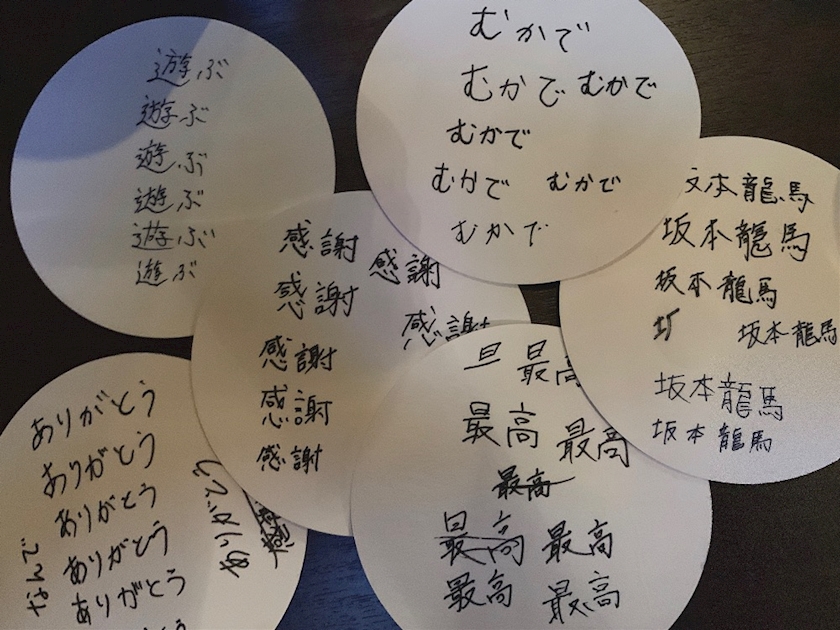 遊ぶ
遊ぶ
遊ぶ
遊ぶ
遊ぶ
遊ぶ
むかで
むかで むかで
むかで
むかで むかで
むかで
坂本龍馬
坂本龍馬
坂本龍馬
坂本龍馬
坂本龍馬
坂本龍馬
感謝
感謝
感謝
感謝
感謝
感謝
感謝
ありがとう
ありがとう
ありがとう
ありがとう
ありがとう
ありがとう
なんで
旦 最高
最高 最高
最高
最高 最高
最高 最高